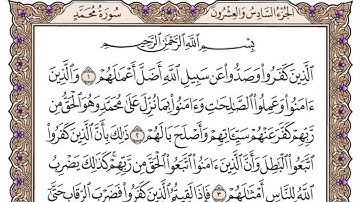 الجزء السادس والعشرون سورة محمد
بِسْمِ اللَّهِ الرَّحْمَٰنِ الرَّحِيمِ
الَّذِينَ كَفَرُوا وَصَدُّوا عَن سَبِيلِ اللَّهِ أَضَلَّ أَعْمَٰلَهُمْ ١ وَالَّذِينَ
ءَامَنُوا وَعَمِلُوا الصَّٰلِحَٰتِ وَءَامَنُوا بِمَا نُزِّلَ عَلَىٰ مُحَمَّدٍ وَهُوَ الْحَقُّ مِن
رَّبِّهِمْ كَفَّرَ عَنْهُمْ سَيِّـَٔاتِهِمْ وَأَصْلَحَ بَالَهُمْ ٢ ذَٰلِكَ بِأَنَّ الَّذِينَ كَفَرُوا
اتَّبَعُوا الْبَٰطِلَ وَأَنَّ الَّذِينَ ءَامَنُوا اتَّبَعُوا الْحَقَّ مِن رَّبِّهِمْ كَذَٰلِكَ يَضْرِبُ
اللَّهُ لِلنَّاسِ أَمْثَٰلَهُمْ ٣ فَإِذَا لَقِيتُمُ الَّذِينَ كَفَرُوا فَضَرْبَ الرِّقَابِ حَتَّىٰ